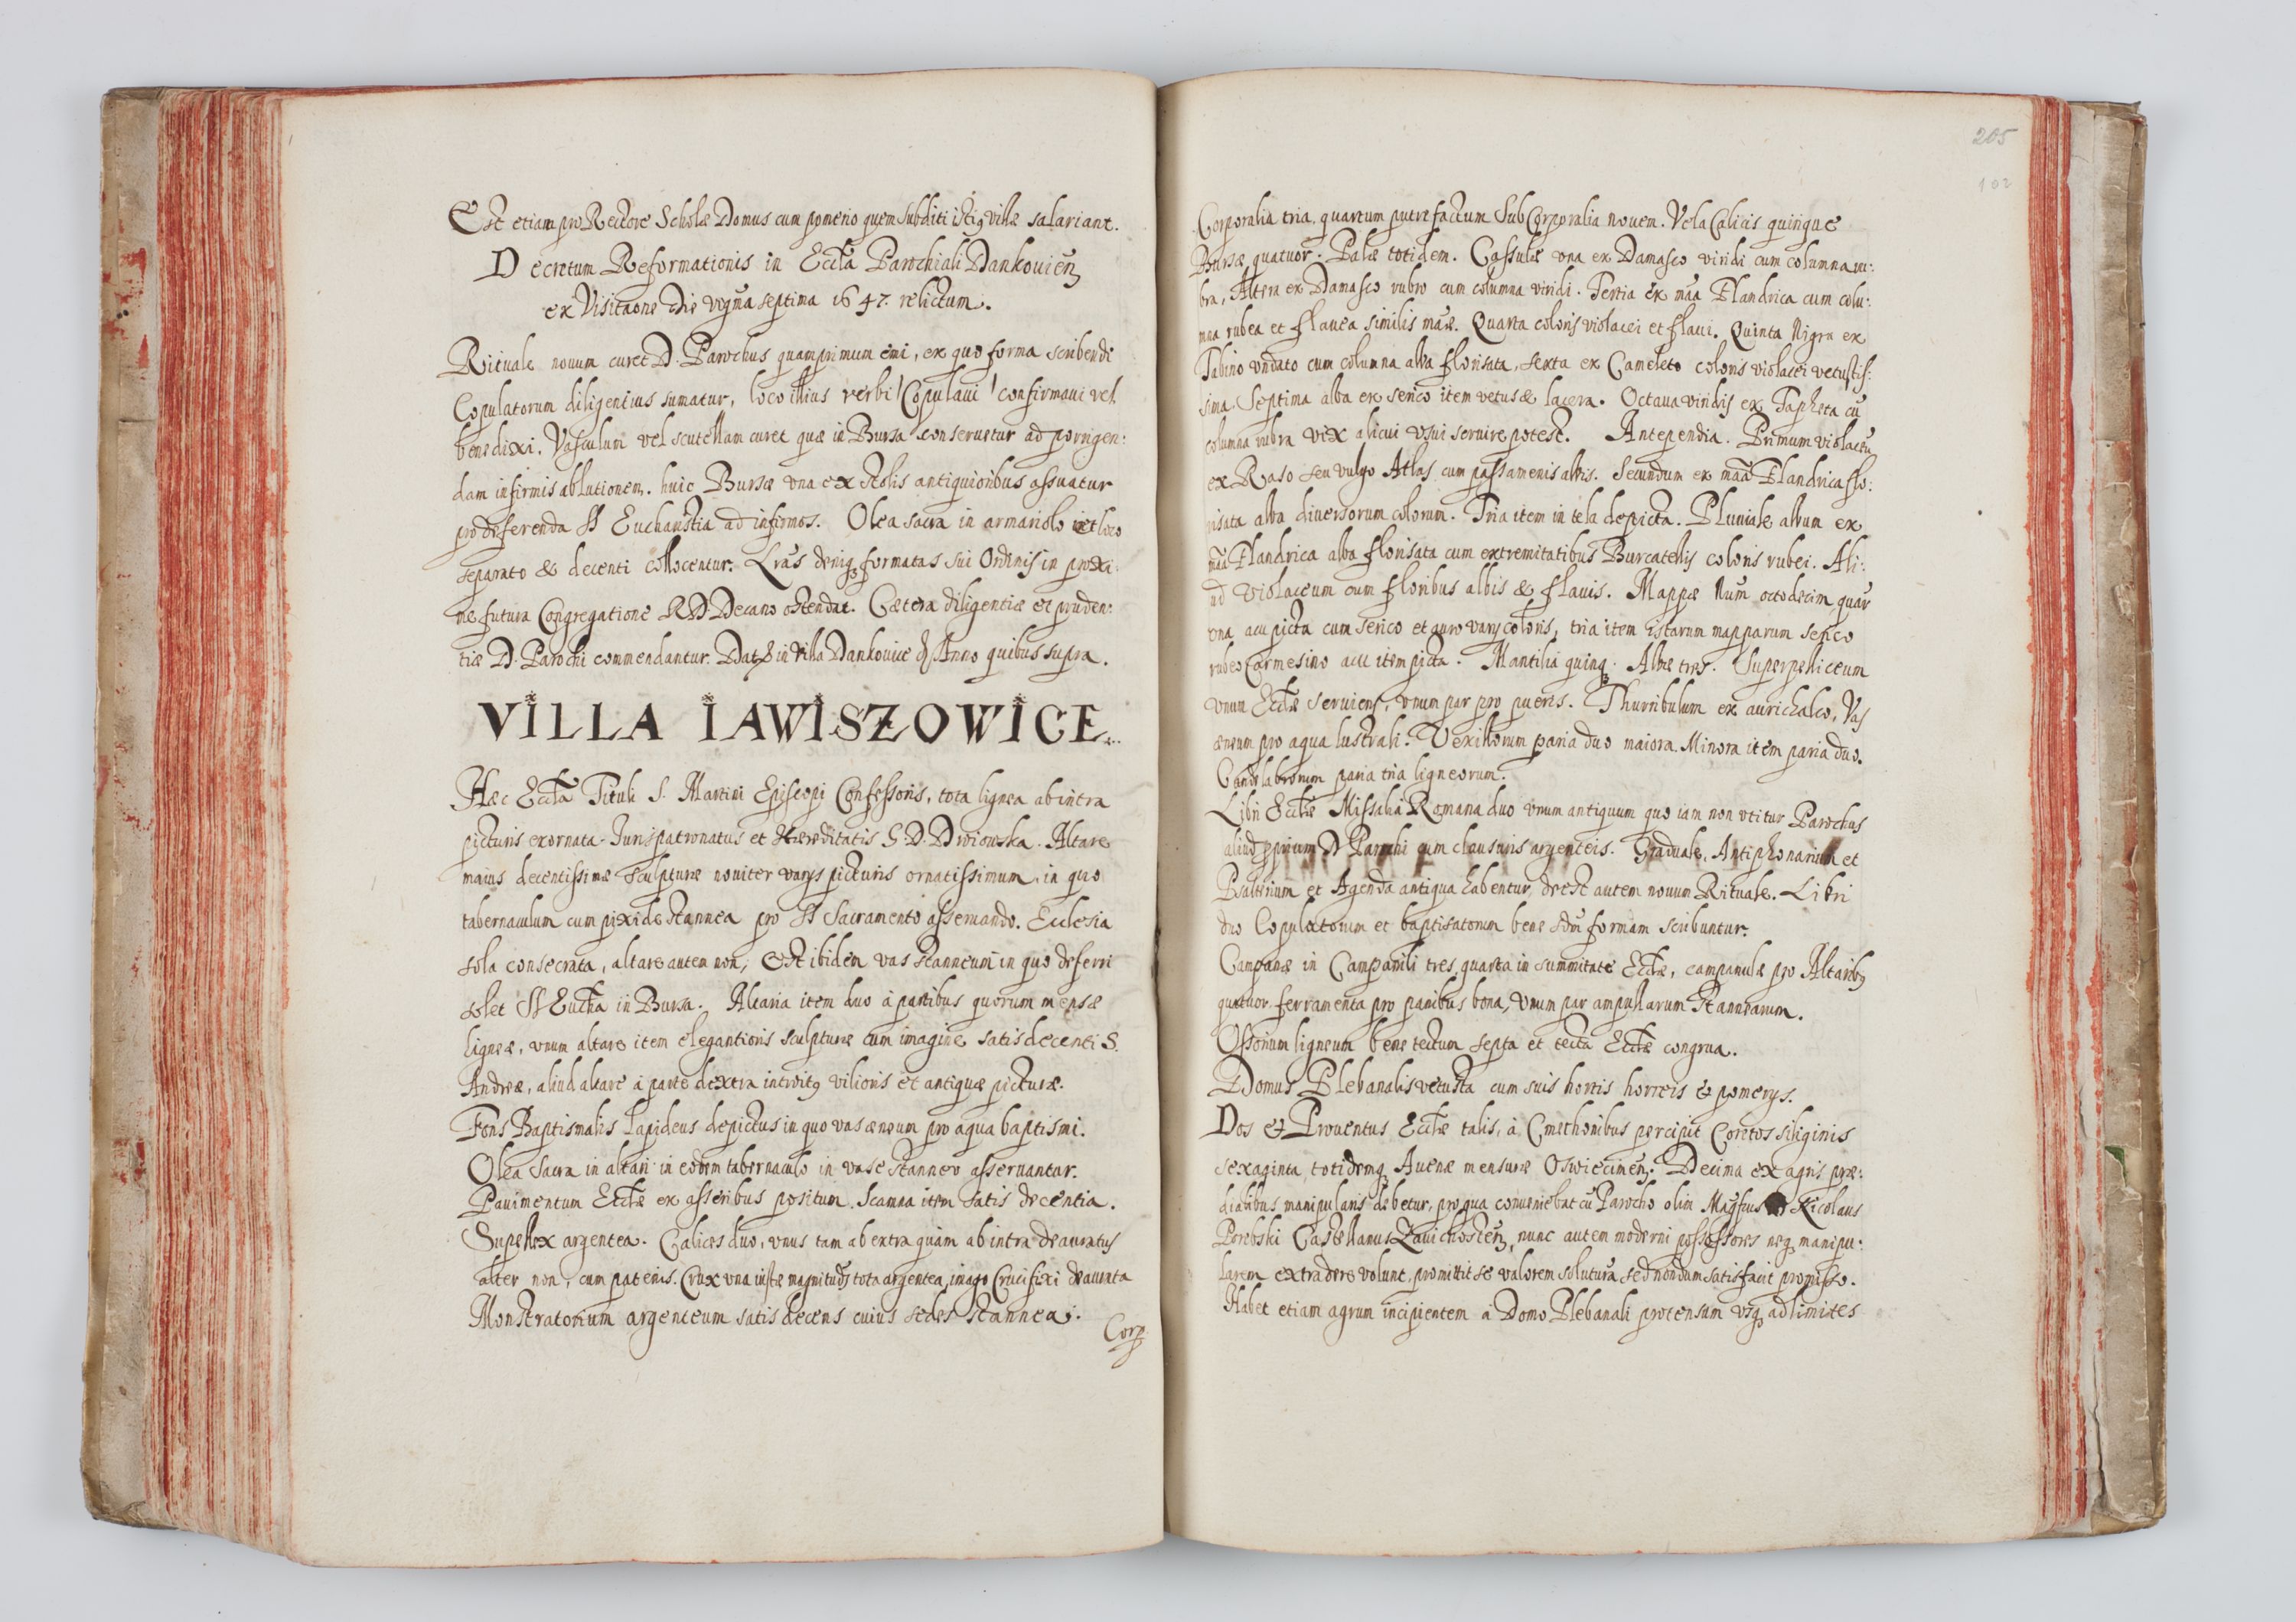 Est etiam pro Rectore Scholæ Domus cum pomerio quem subditi istiq villæ salariant.
Decretum Reformationis in Eccła Parochiali Dankouień
ex Visitaone Die vigma septima 1647. relictum.
Rituale nouum curet D. Parochus quamprimum emi, ex quo forma scribendi
Copulatorum diligentius sumatur, loco illius verbi /Copulaui/ confirmaui vel
benedixi. Vasculum vel scutellam curet quæ in Bursa conseruetur ad porrigen:
dam infirmis ablutionem. huic Bursæ vna ex stolis antiquioribus assuatur
pro deferenda SS Eucharistia ad infirmos. Olea sacra in armariolo et loco
separato & decenti collocentur. Lr̃as deniq formatas sui Ordinis in proxi:
me futura Congregatione RD. Decano ostendat. Cætera diligentiæ et pruden:
tiæ D. Parochi commendantur. Dat in Villa Dankouice Anno quibus supra.
VILLA IAWISZOWICE
Hæc Eccła Tituli S. Martini Episcopi Confessoris, tota lignea ab intra
picturis exornata. Juris patronatus et Hæreditatis G. D. Dwiowska. Altare
maius decentissimæ sculpturæ nouiter varys picturis ornatissimum, in quo
tabernaculum cum pixide stannea pro SS Sacramento asseruando. Ecclesia
sola consecrata, altare autem non, Est ibidem vas stanneum in quo deferri
solet SS Eucha in Bursa. Altaria item duo à partibus quorum mensæ
ligneæ, vnum altare item elegantioris sculpturæ cum imagine satis decenti S.
Andreæ, aliud altare à parte dextra introitq vilioris et antiquæ picturæ.
Fons Baptismalis lapideus depictus in quo vas æneum pro aqua baptismi.
Olea Sacra in altari in eodem tabernaculo in vase stanneo asseruantur.
Pauimentum Ecclæ ex asseribus positum. Scamna item satis decentia.
Supellex argentea. Calices duo, vnus tam ab extra quàm ab intra deauratus
alter non, cum patenis. Crux vna iustæ magnitudis tota argentea, imago Crucifixi deaurata
Monstratorium argenteum satis decens cuius sedes stannea.
Corp.
205
102
Corporalia tria, quartum putrefactum Sub Corporalia nouem. Vela Calicis quinque
Bursæ quatuor. Palæ totidem. Casulæ vna ex Damasco viridi cum columna ru:
bra, Altera ex Damasco rubro cum columna viridi. Tertia ex maa Flandrica cum colu:
mna rubea et flauea similis maæ. Quarta coloris violacei et flaui. Quinta Nigra ex
Tabino vndato cum columna alba florisata, sexta ex Cameleto coloris violacei vetustis:
sima Septima alba ex serico item vetus & lacera. Octaua viridis ex Tapheta cũ
columna rubra vix alicui vsui seruire potest. Antependia. Primum violaceũ
ex Raso seu vulgo Atlas cum passamenis albis. Secundum ex maa Flandrica flo:
risata alba diuersorum colorum. Tria item in tela depicta. Pluuiale album ex
maa Flandrica alba florisata cum extremitatibus Burcatellis coloris rubei. Ali:
ud Violaceum cum floribus albis & flauis. Mappæ Num octodecim, quar
vna acu picta cum serico et auro varij coloris, tria item istarum mapparum serico
rubeo Carmesino acu item picta. Mantilia quinq. Albæ tres. Superpelliceum
vnum Ecclæ seruiens, vnum par pro pueris. Thurribulum ex aurichalco, Vas
æneum pro aqua lustrali. Vexillorum paria duo maiora. Minora item paria duo.
Candelabrorum paria tria ligneorum.
Libri Ecclæ Missalia Romana duo vnum antiquum quo iam non vtitur Parochus
aliud pprium D. Parochi cum clausuris argenteis. Graduale, Antiphonarium et
Psalterium et Agenda antiqua habentur, deest autem nouum Rituale. Libri
duo Copulatorum et baptisatorum bene sdm formam scribuntur.
Campanæ in Campanili tres, quarta in summitate Ecclæ, campanulæ pro Altaribq
quatuor. ferramenta pro panibus bona, Vnum par ampullarum stannearum.
Ossorium ligneum bene tectum septa et tecta Ecclæ congrua.
Domus Plebanalis vetusta cum suis hortis horreis & pomerys.
Dos & Prouentus Ecclæ talis, à Cmethonibus percipit Coretos siliginis
sexaginta, totidemq Auenæ mensuræ Oswiecimeń. Decima ex agris præ:
dialibus manipularis debetur, pro qua conueniebat cũ Parocho olim Magfcus Nicolaus
Porebski Castellanus Zauichosteń, nunc autem moderni possessores neq manipu:
larem extradere volunt, promittit se valorem soluturũ sed nondum satisfacit promisso.
Habet etiam agrum incipientem à Domo Plebanali protensum vsq ad limites